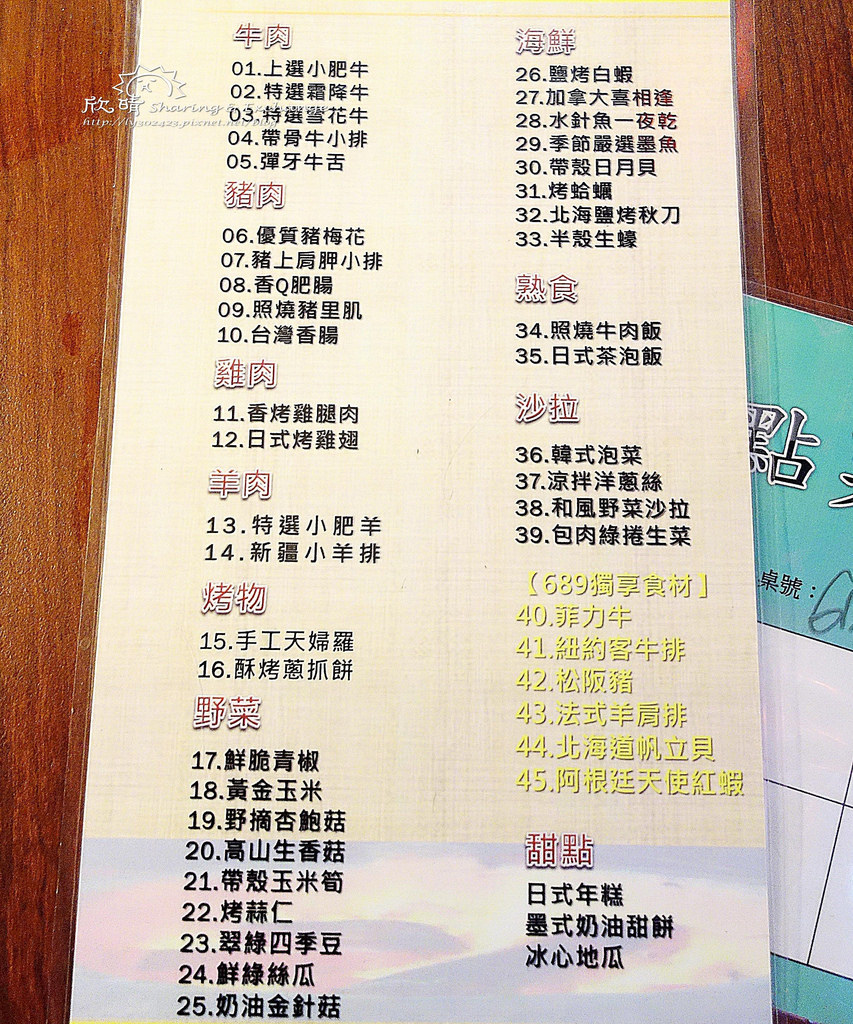 牛肉
01.上選小肥牛
02.特選霜降牛
03.特選雪花牛
04.帶骨牛小排
05.彈牙牛舌
豬肉
06.優質豬梅花
07.豬上肩胛小排
08.香Q肥腸
09.照燒豬里肌
10.台灣香腸
雞肉
11.香烤雞腿肉
12.日式烤雞翅
羊肉
13.特選小肥羊
14.新疆小羊排
烤物
15.手工天婦羅
16.酥烤蔥抓餅
野菜
17.鮮脆青椒
18.黃金玉米
19.野摘杏鮑菇
20.高山生香菇
21.帶殼玉米筍
22.烤蒜仁
23.翠綠四季豆
24.鮮綠絲瓜
25.奶油金針菇
海鮮
26.鹽烤白蝦
27.加拿大喜相逢
28.水針魚一夜乾
29.季節嚴選墨魚
30.帶殼日月貝
31.烤蛤蠣
32.北海鹽烤秋刀
33.半殼生蠔
熟食
34.照燒牛肉飯
35.日式茶泡飯
沙拉
36.韓式泡菜
37.涼拌洋蔥絲
38.和風野菜沙拉
39.包肉綠捲生菜
【689獨享食材】
40.菲力牛
41.紐約客牛排
42.松阪豬
43.法式羊肩排
44.北海道帆立貝
45.阿根廷天使紅蝦
甜點
日式年糕
墨式奶油甜餅
冰心地瓜
點
桌號：
欣晴 Sharing &
http://ly302423.pixnet.net/blog